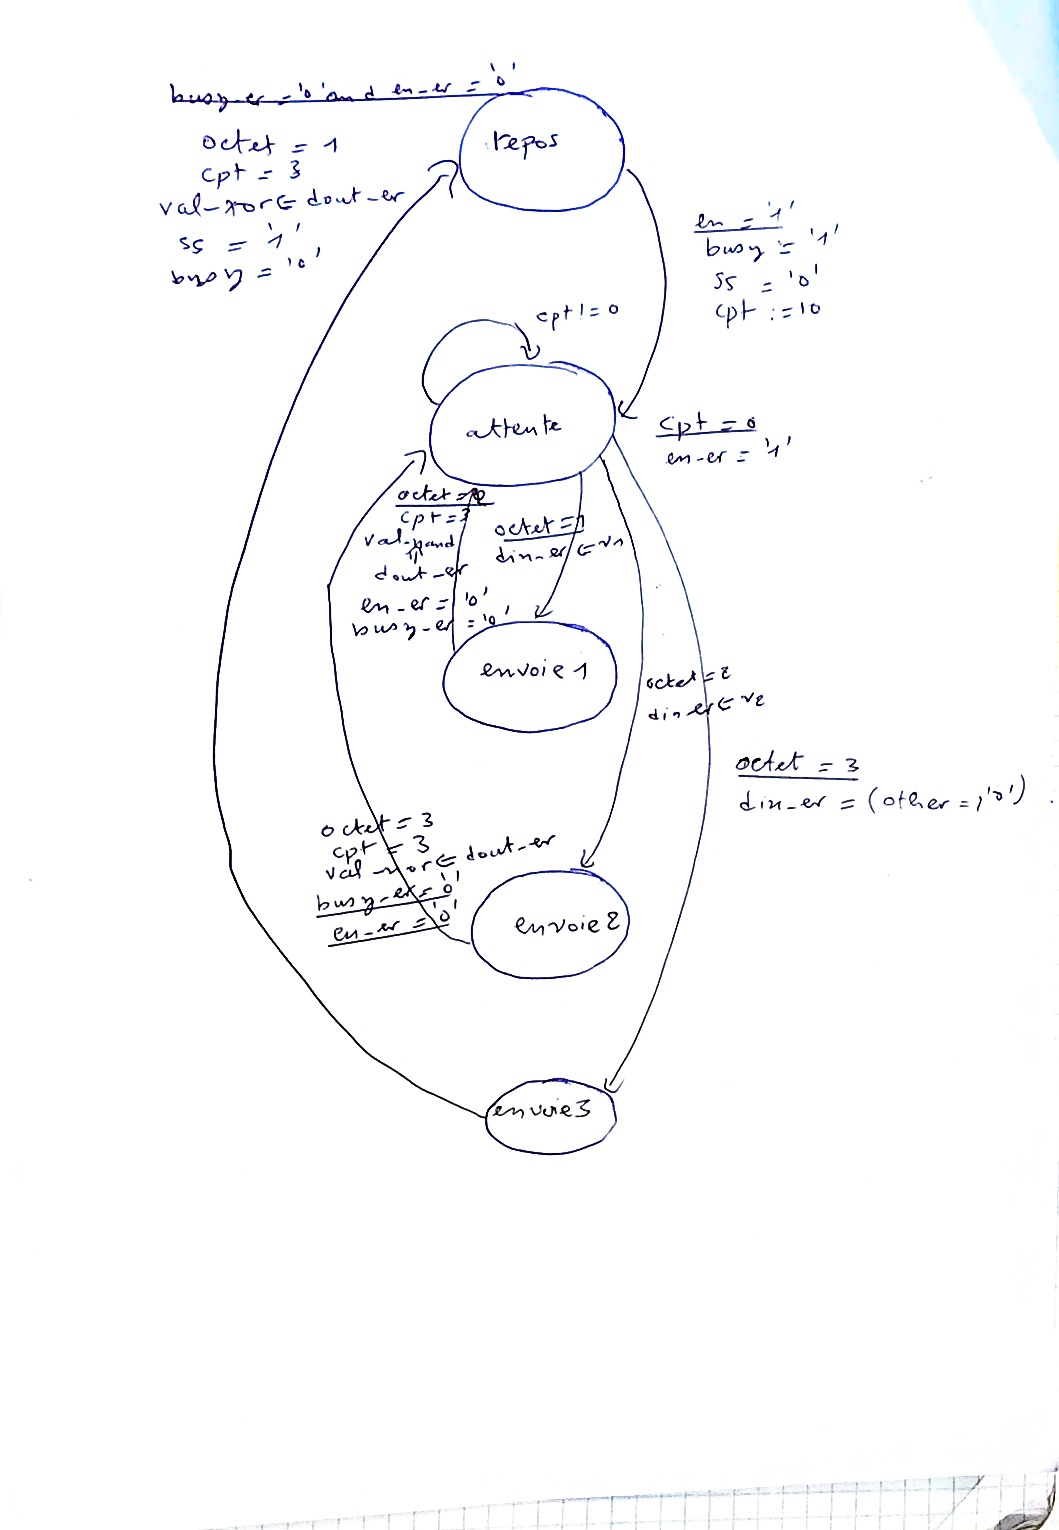 busy-er = '0' and en-er = '0'
repos
octet = 1
cpt = 3
val-xor ⇐ dout-er
ss = '1'
busy = '0'
en = '1'
busy = '1'
ss = '0'
cpt := 10
cpt != 0
attente
cpt = 0
en-er = '1'
octet = 2
cpt = 3
val-nand
⇑
dout-er
en-er = '0'
busy-er = '0'
octet = 1
din-er ⇐ v1
envoie 1
octet = 2
din-er ⇐ v2
octet = 3
din-er = (other = ,'0')
octet = 3
cpt = 3
val-xor ⇐ dout-er
busy-er = '0'
en-er = '0'
envoie 2
envoie 3